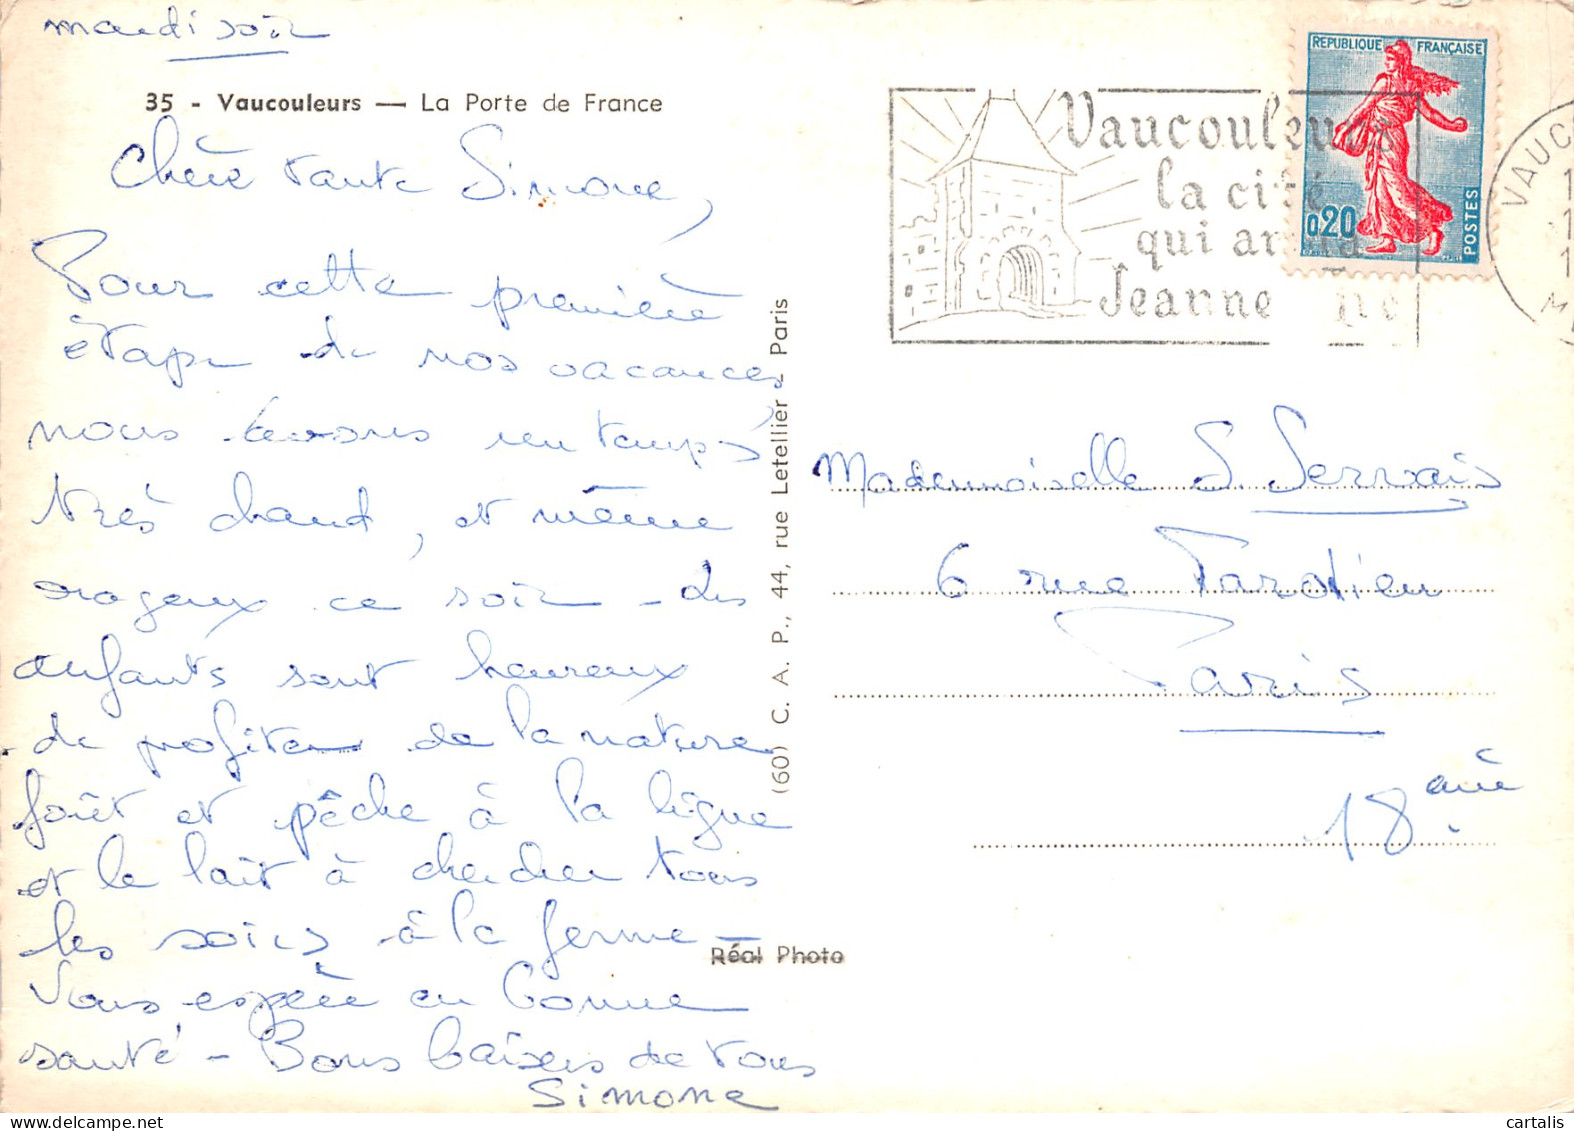 mardi soir
35 - Vaucouleurs — La Porte de France
Chère tante Simone,
Pour cette première
étape de nos vacances
nous avons un temps
très chaud, et même
orageux ce soir - des
enfants sont heureux
de profiter de la nature
forêt et pêche à la ligne
et le lait à chercher tous
les soirs à la ferme -
Vous espère en bonne
santé - Bons baisers de tous
Simone
(60) C. A. P., 44, rue Letellier - Paris
Réal Photo
Vaucouleurs
la cité
qui arma
Jeanne
REPUBLIQUE FRANÇAISE
0,20
POSTES
VAUC
Mademoiselle S. Servais
6 rue Tardieu
Paris
18.
cartalis
www.delcampe.net